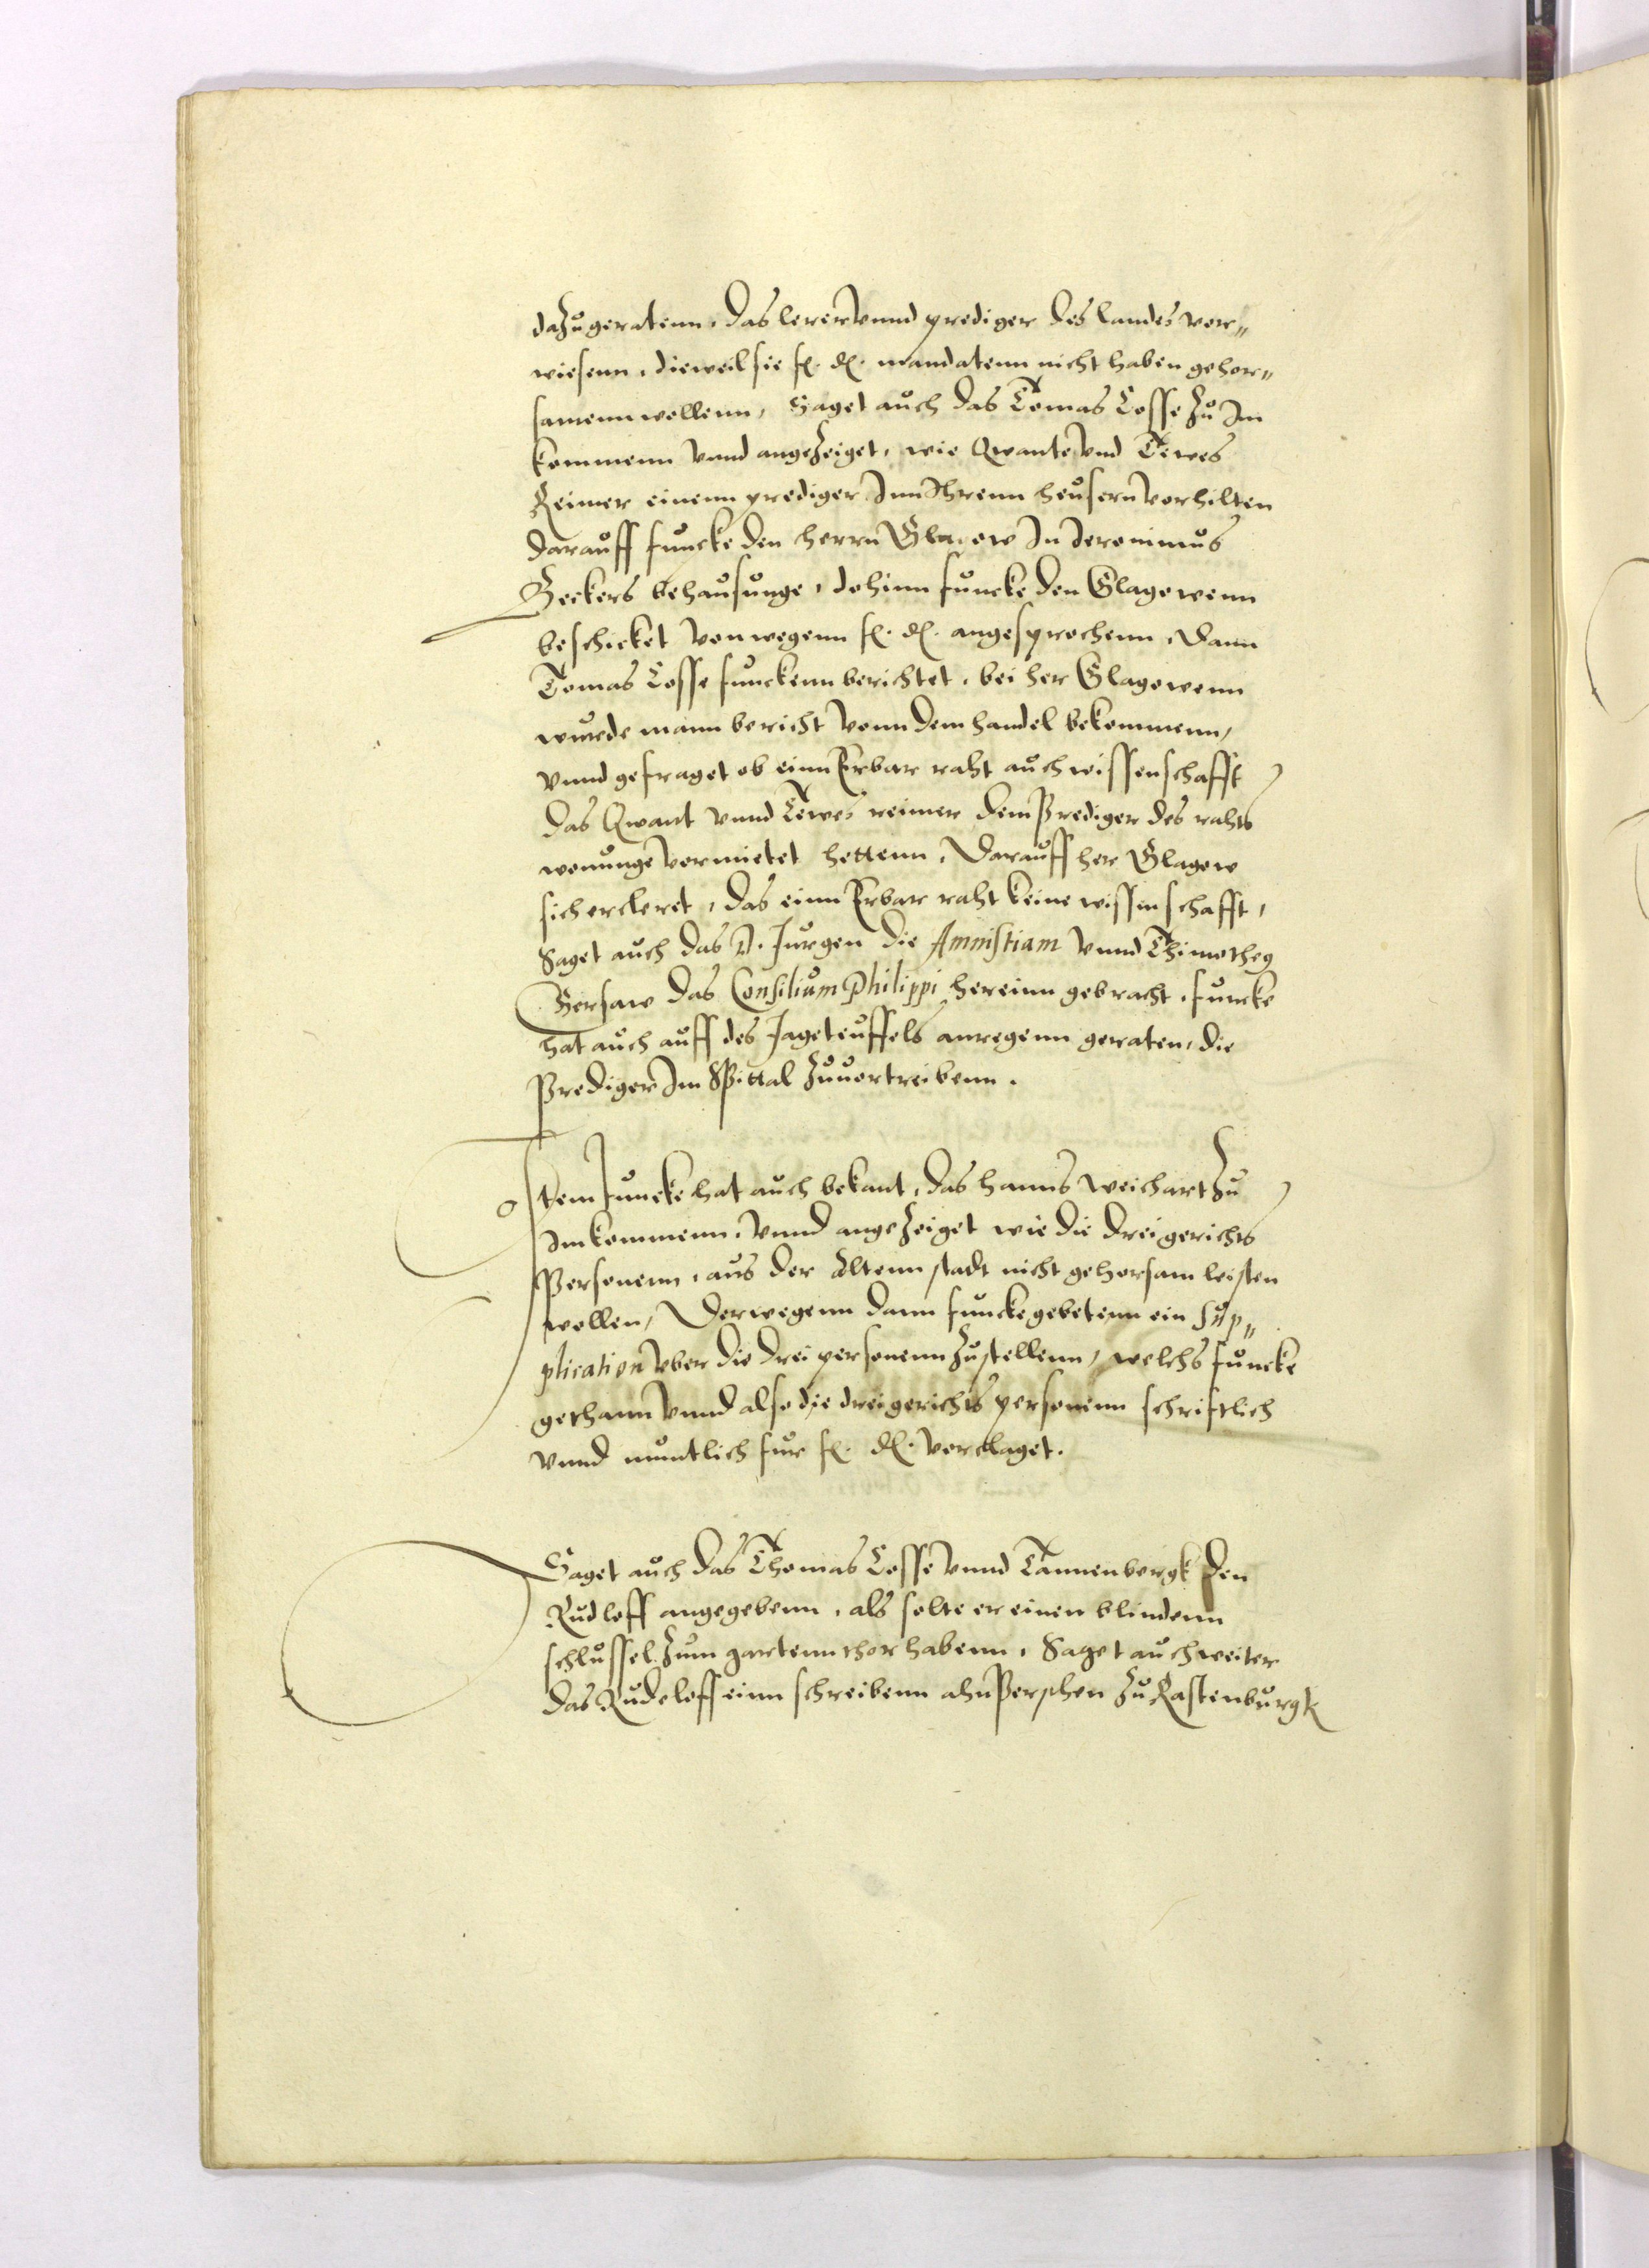 dazu geratenn, das lerer vnnd prediger des landes vor„
wiesenn, dieweil sie f. d. mandatenn nicht haben gehor„
samenn wollenn, Saget auch das Tomas Cosse zu Im
kommenn vnnd angezeiget, wie Qwante vnd Tewes
Reimer einenn prediger Inn Ihrenn heusern vorhilten
darauff funcke den herrn Glagow In Jeronimus
Beckers behausunge, dohinn funcke den Glagowenn
beschicket von wegenn f. d. angesprochenn, Dann
Tomas Cosse funckenn berichtet, bei her Glagowenn
wurde mann bericht vonn dem handel bekommenn,
vnnd gefraget ob einn Erbar raht auch wissenschafft
das Qwant vnnd Tewes reimer dem Prediger des rahts
wonunge vormietet hettenn, Darauff her Glagow
sich ercleret, das einn Erbar raht keine wissinschafft,
Saget auch das D. Jurgen die Amnistiam vnnd Thimotheg
Gersaw das Consilium Philippi hereinn gebracht, funcke
hat auch auff des Jageteuffels anregenn geraten, die
Prediger Im Spittal zuuortreibenn.
Item Funcke hat auch bekant, das hanns Weichart zu
Im kommenn, vnnd angezeiget wie die drei gerichts
Personenn, aus der Altenn stadt nicht gehorsam leisten
wollen, Derwegenn dann funcke gebetenn ein Sup„
plication vber die drei personenn zustellenn, welchs funcke
gethann vnnd also die drei gerichts personenn schriftlich
vnnd muntlich fur f. d. vorclaget.
Saget auch das Thomas Cosse vnnd Tannenbergk den
Rudloff angegebenn, als solte er einen blindenn
schlussel zum gartenn thor habenn, Saget auch weiter
das Rudeloff einn schreibenn ahn Perschen zu Rastenburgk